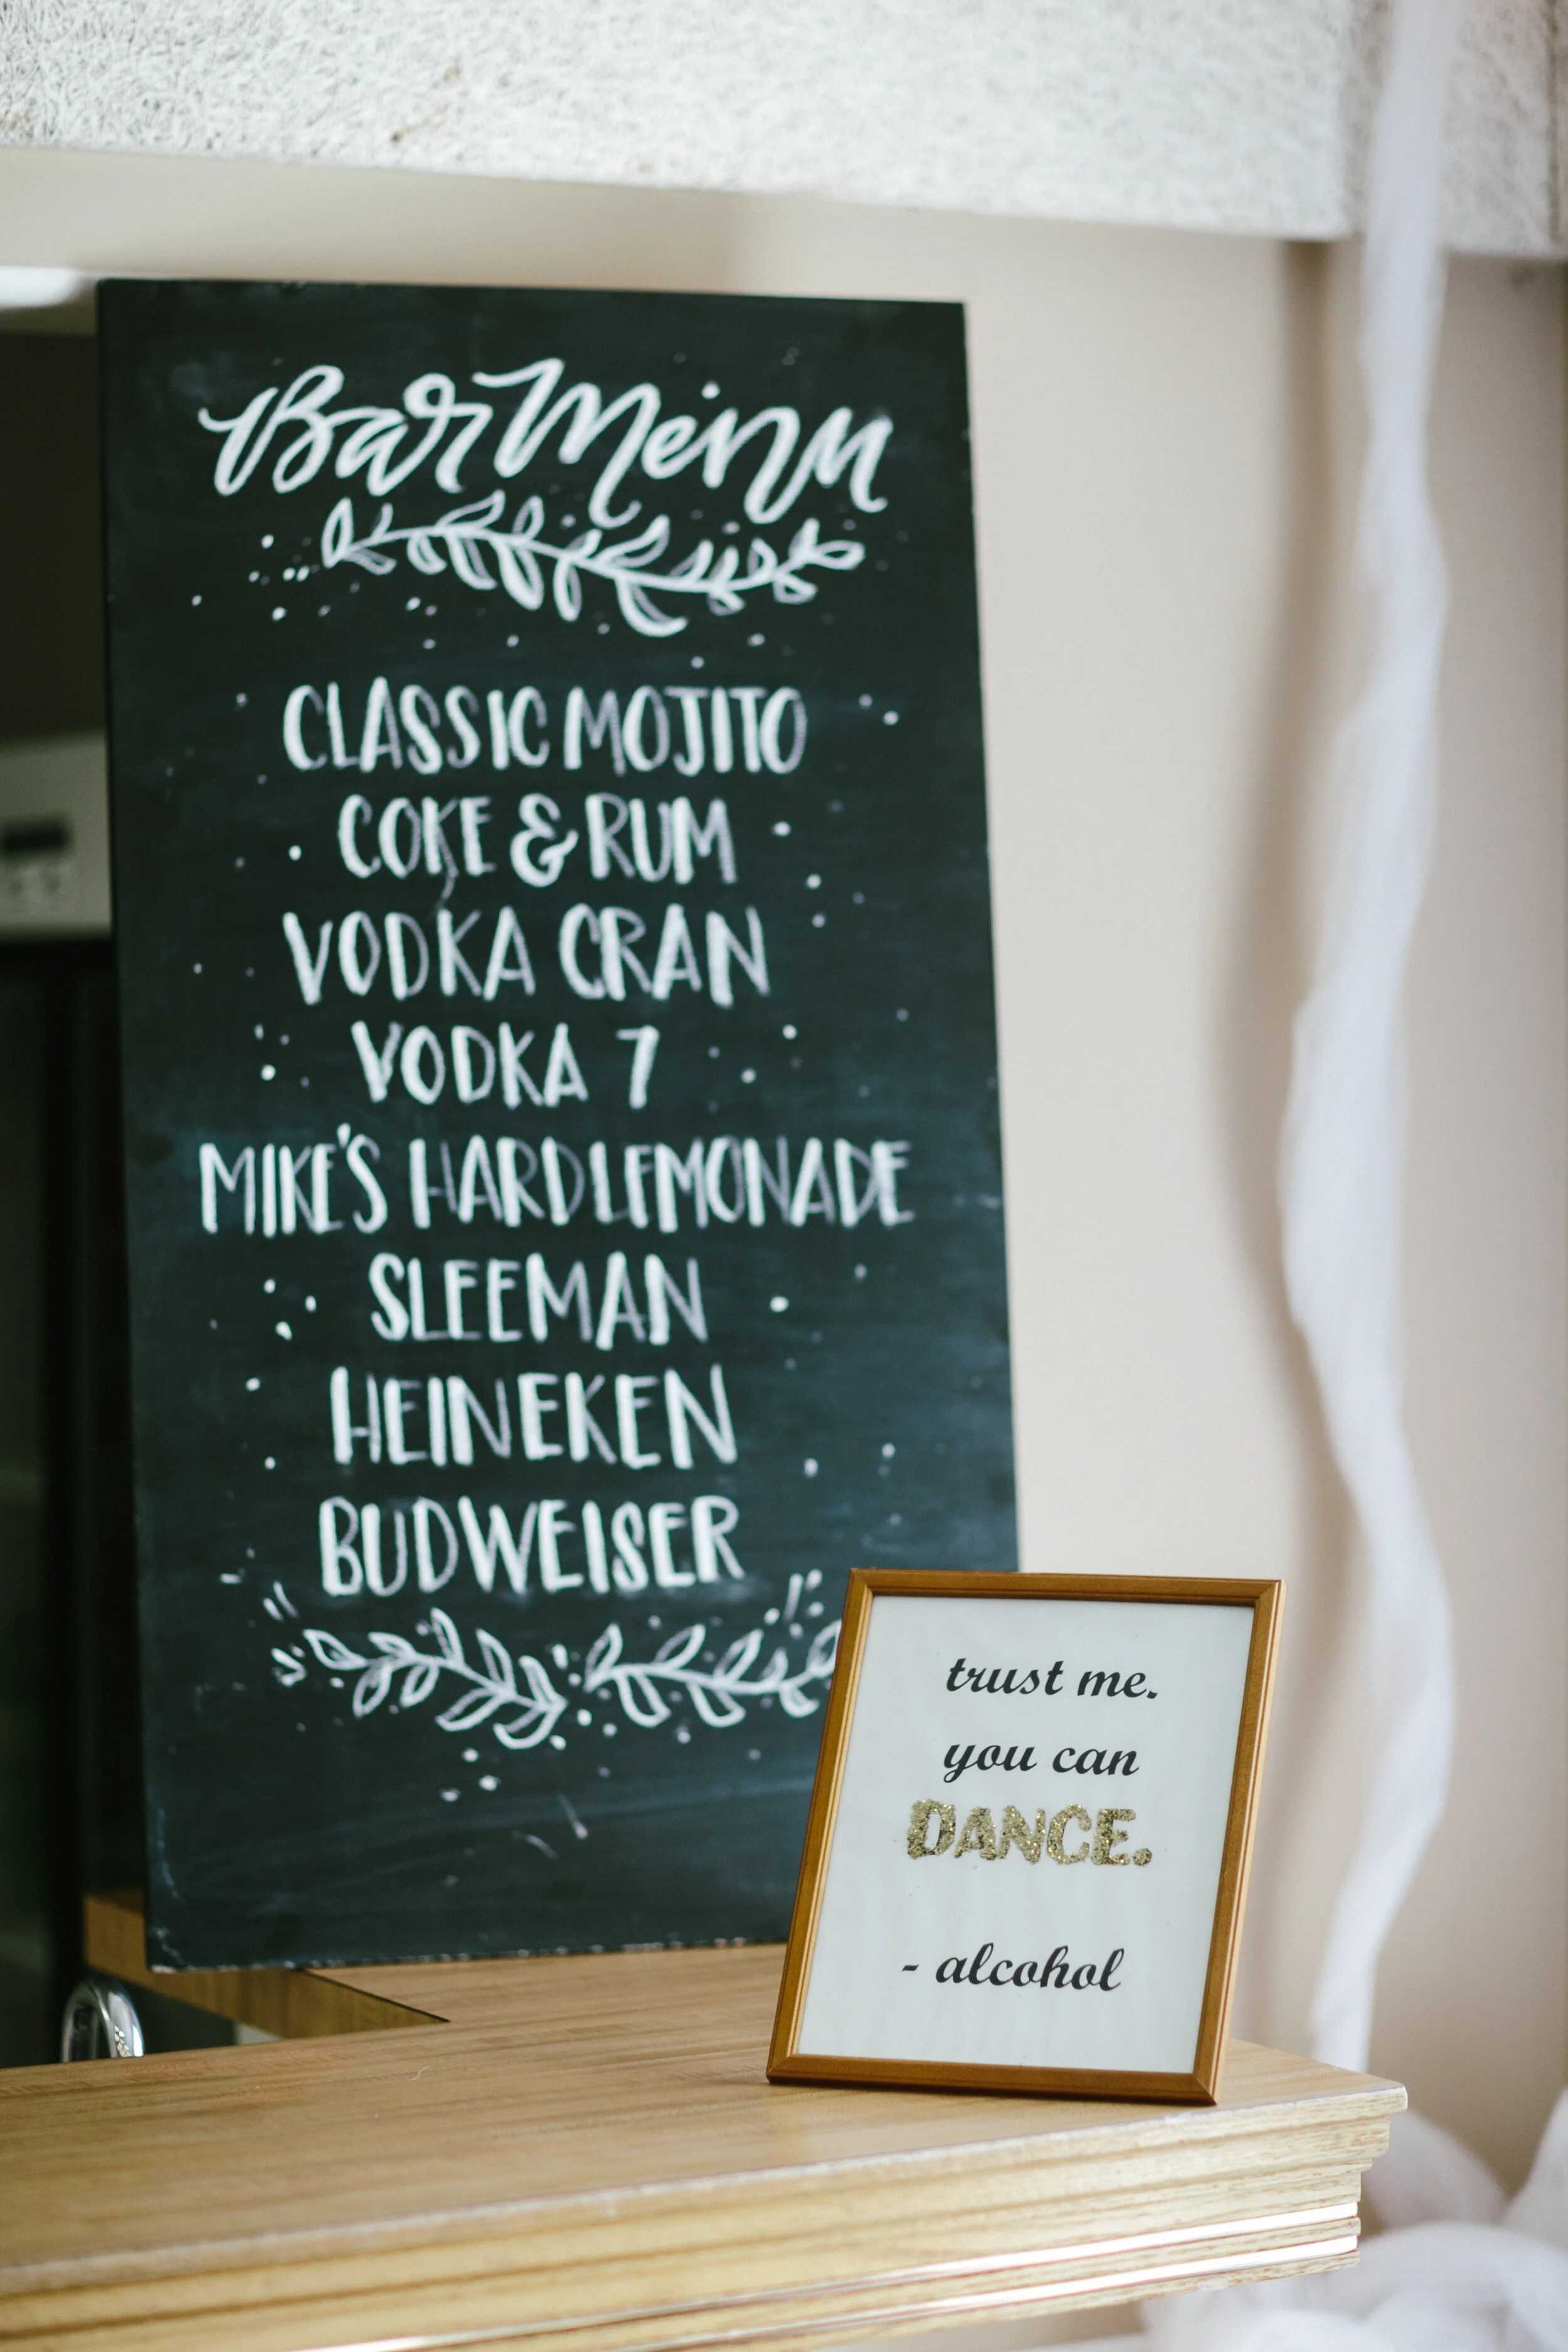 Bar Menu
CLASSIC MOJITO
COKE & RUM
VODKA CRAN
VODKA 7
MIKE'S HARD LEMONADE
SLEEMAN
HEINEKEN
BUDWEISER
trust me.
you can
DANCE.
- alcohol